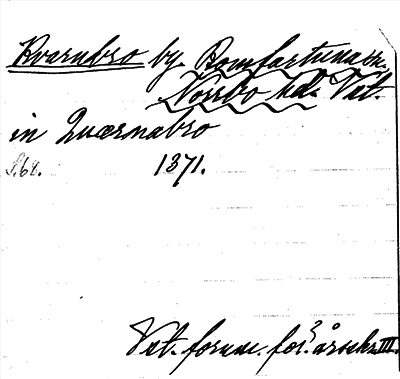 Kvarnbro by Romfartuna sn.
Norrbo hd. Vstm.
in Quærnabro
S.68. 1371.
Vst. fornm. för:s årsskr. III.